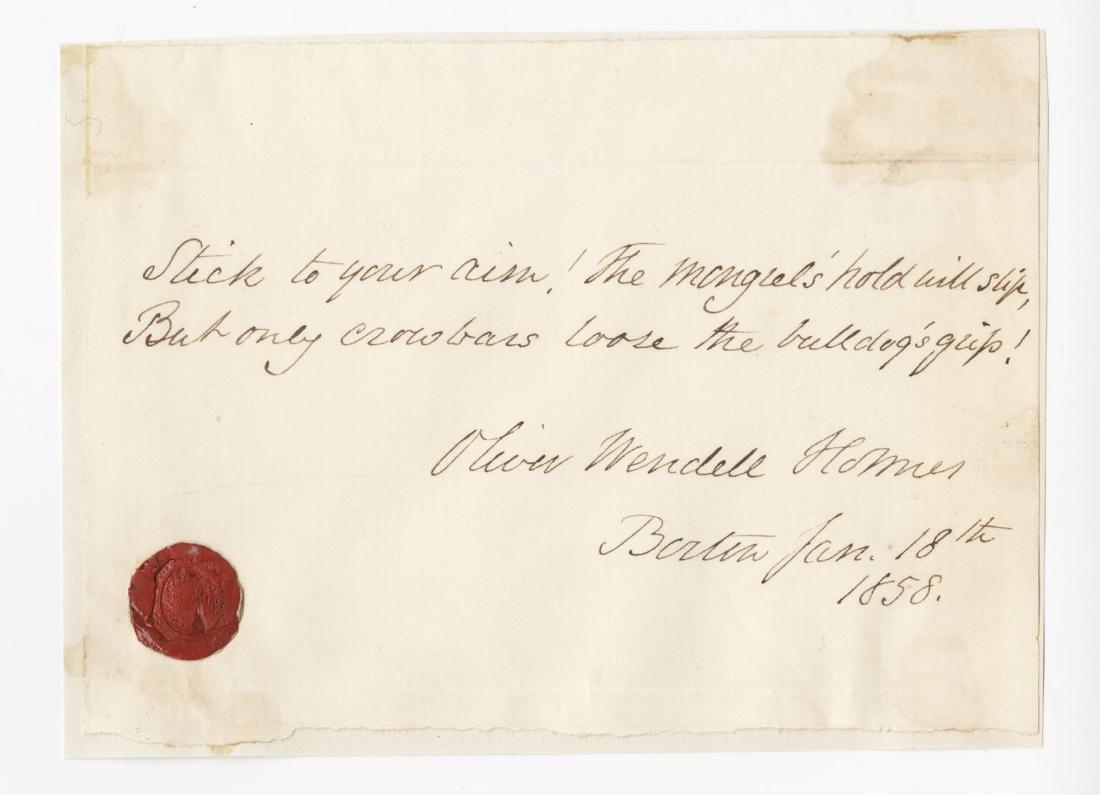 Stick to your aim! The mongrel's hold will slip,
But only crowbars loose the bulldog's grip!
Oliver Wendell Holmes
Boston Jan. 18th
1858.